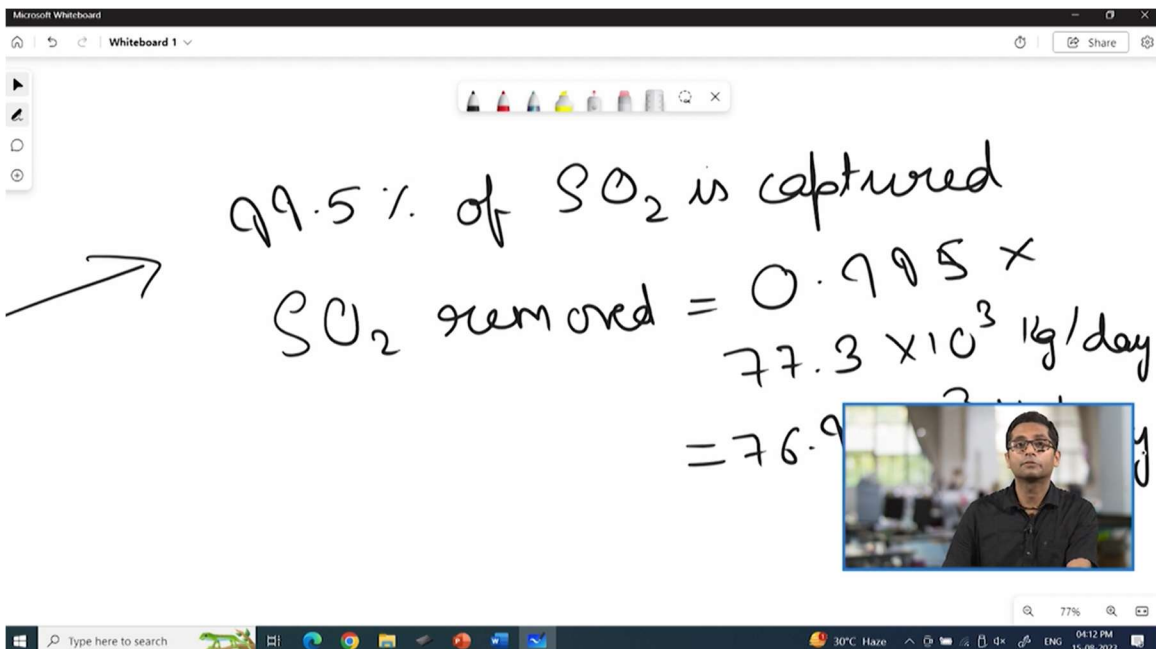 Microsoft Whiteboard
Whiteboard 1
Share
99.5 % of SO₂ is captured
SO₂ removed = 0.995 ×
77.3 ×10³ Kg/day
= 76.9
77%
Type here to search
30°C Haze
ENG
04:12 PM
15-08-2023